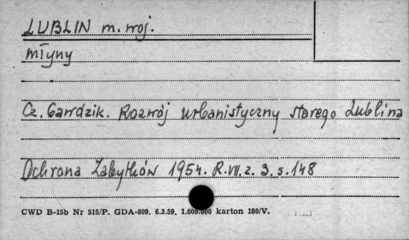 LUBLIN m. woj.
młyny
Cz. Gawdzik. Rozwój urbanistyczny starego Lublina
Ochrona Zabytków 1954. R.VII. z. 3. s. 148
CWD B-15b Nr 515/P. GDA-809. 6.3.59. 1.000.000 karton 180/V.